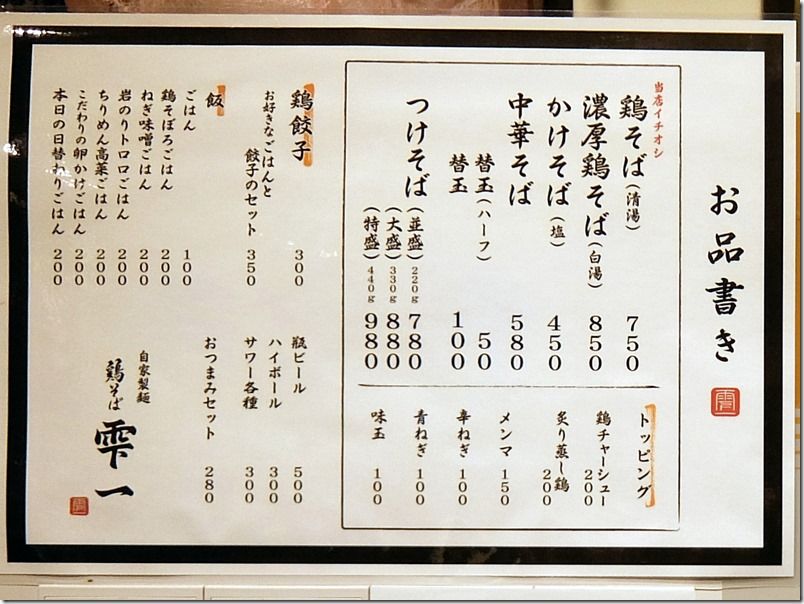 お品書き
当店イチオシ
鶏そば(清湯) 750
濃厚鶏そば(白湯) 850
かけそば(塩) 450
中華そば 580
替玉(ハーフ) 50
替玉 100
つけそば(並盛) 220g 780
(大盛) 330g 880
(特盛) 440g 980
トッピング
鶏チャーシュー 200
炙り蒸し鶏 200
メンマ 150
辛ねぎ 100
青ねぎ 100
味玉 100
鶏餃子 300
お好きなごはんと
餃子のセット 350
飯
ごはん 100
鶏そぼろごはん 200
ねぎ味噌ごはん 200
岩のりトロロごはん 200
ちりめん高菜ごはん 200
こだわりの卵かけごはん 200
本日の日替わりごはん 200
瓶ビール 500
ハイボール 300
サワー各種 300
おつまみセット 280
自家製麺
鶏そば
雫一